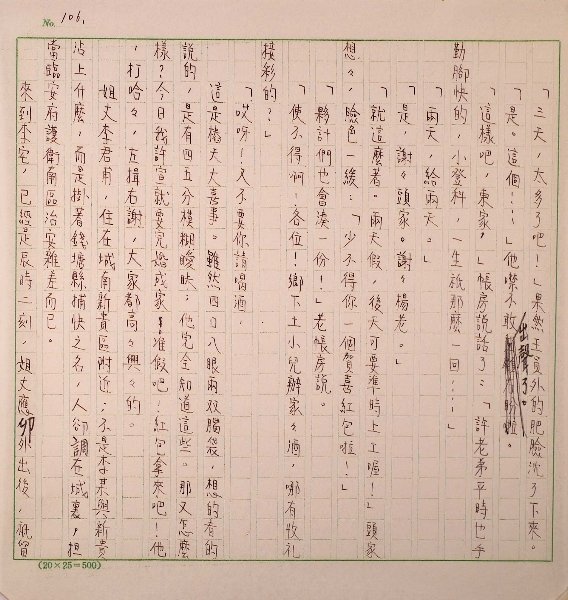 No. 106,
「三天，太多了吧！」果然王員外的肥臉沈了下來。
「是。這個⋯⋯」他噤不敢出聲了。
「這樣吧，東家，」帳房說話了：「許老弟平時也手
勤腳快的，小登科，一生祇那麼一回⋯⋯」
「兩天，給兩天。」
「是，謝々頭家。謝々楊老。」
「就這麼著。兩天假，後天可要準時上工喔！」頭家
想々，臉色一緩：「少不得你一個賀喜紅包啦！」
「夥計們也會湊一份！」老帳房說。
「使不得啊！各位！鄉下土小兒辦家々酒，哪有收禮
接彩的？」
「哎呀！又不要你請喝酒。
這是樁大大喜事。雖然四日八眼兩双腦袋，想的看的
說的，是有四五分模糊曖昧；他完全知道這些。那又怎麼
樣？今日我許宣就要完婚成家！准假吧！紅包拿來吧！他
，打哈々，左揖右謝，大家都高々興々的。
姐丈李君甫，住在城南新貴區附近；不是李某與新貴
沾上什麼，而是掛著錢塘縣捕快之名，人卻調在城裏，担
當臨安府護衛南區治安雜差而已。
來到李宅，已經是辰時二刻，姐丈應卯外出後，祇留
(20×25=500)